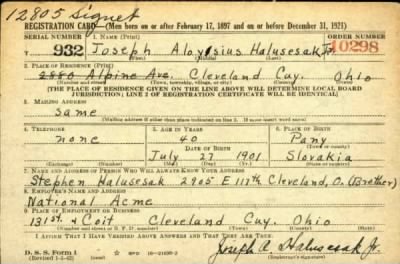 12805 Signet
REGISTRATION CARD—(Men born on or after February 17, 1897 and on or before December 31, 1921)
SERIAL NUMBER 1. NAME (Print) ORDER NUMBER
T 932 Joseph Aloysius Halusesak Jr. 10298
(First) (Middle) (Last)
2. PLACE OF RESIDENCE (Print)
2880 Alpine Ave. Cleveland Cuy. Ohio
(Number and street) (Town, township, village, or city) (County) (State)
[THE PLACE OF RESIDENCE GIVEN ON THE LINE ABOVE WILL DETERMINE LOCAL BOARD
JURISDICTION; LINE 2 OF REGISTRATION CERTIFICATE WILL BE IDENTICAL]
3. MAILING ADDRESS
Same
[Mailing address if other than place indicated on line 2. If same insert word same]
4. TELEPHONE 5. AGE IN YEARS 6. PLACE OF BIRTH
none 40 Pany
DATE OF BIRTH (Town or county)
July 27 1901 Slovakia
(Exchange) (Number) (Mo.) (Day) (Yr.) (State or country)
7. NAME AND ADDRESS OF PERSON WHO WILL ALWAYS KNOW YOUR ADDRESS
Stephen Halusesak 2905 E 117th Cleveland, O. (Brother)
8. EMPLOYER'S NAME AND ADDRESS
National Acme
9. PLACE OF EMPLOYMENT OR BUSINESS
131st & Coit Cleveland Cuy. Ohio
(Number and street or R. F. D. number) (Town) (County) (State)
I AFFIRM THAT I HAVE VERIFIED ABOVE ANSWERS AND THAT THEY ARE TRUE.
D. S. S. Form 1
(Revised 1-1-42) (over) Joseph A Halusesak Jr.
(Registrant's signature)